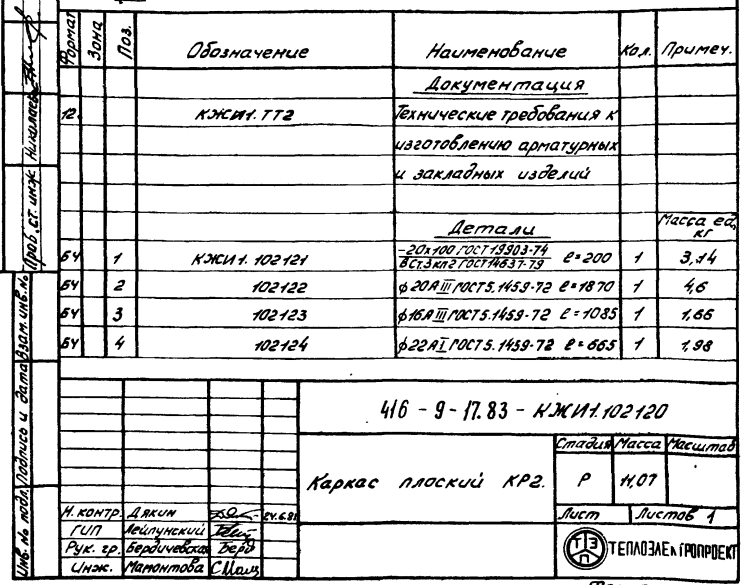 Формат Зона Поз. Обозначение Наименование Кол. Примеч.
Документация
12 КЖИ1.ТТ2 Технические требования к
изготовлению арматурных
и закладных изделий
Детали Масса ед, кг
БЧ 1 КЖИ1.102121 -20х100 ГОСТ 19903-74 ℓ=200 1 3,14
ВСт.3кп2 ГОСТ 14637-79
БЧ 2 102122 ϕ20АIII ГОСТ5.1459-72 ℓ=1870 1 4,6
БЧ 3 102123 ϕ16АIII ГОСТ5.1459-72 ℓ=1085 1 1,66
БЧ 4 102124 ϕ22АI ГОСТ5.1459-72 ℓ=665 1 1,98
416-9-17.83-КЖИ1.102120
Каркас плоский КР2.
Стадия Масса Масштаб
Р 11,07
Лист Листов 1
ТЭП ТЕПЛОЭЛЕКТРОПРОЕКТ
Н.контр. Дякин 24.6.81
ГИП Лейпунский
Рук. гр. Бердичевская
Инж. Мамонтова
Проб. ст. инж Николаев
Взам. инв. №
Подпись и дата
Инв. № подл.